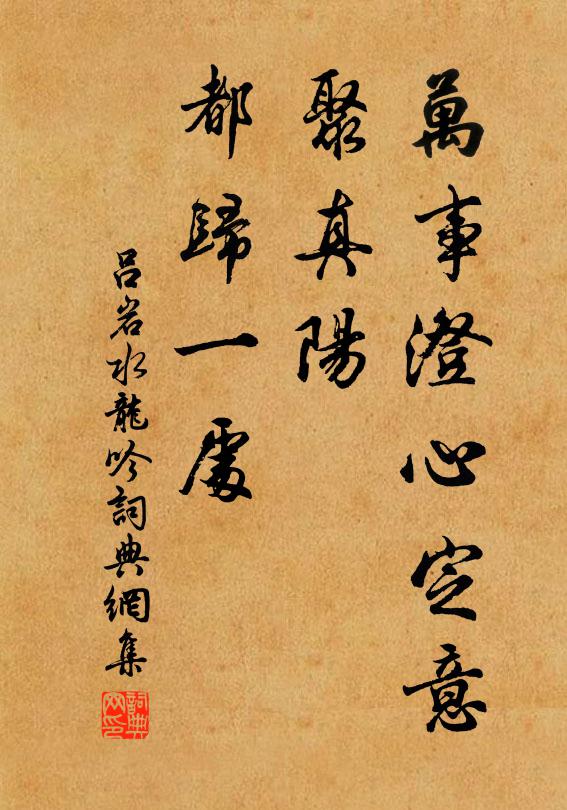 萬事澄心定意
聚真陽
都歸一處
吕岩水龍吟詞典網集
詞典网印